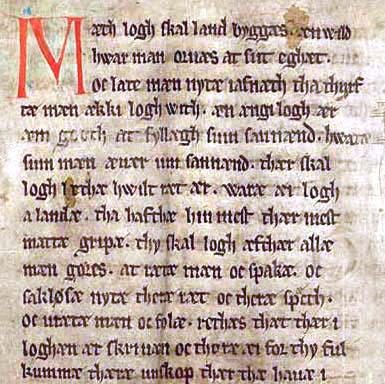 Mæth logh skal land byggæs. æn wild
hwar man oruæs at sit eghæt.
oc late mæn nytæ iafnæth tha thyrf
tæ mæn ækki logh with. æn ængi logh ær
æm goth at fyllægh sum sannænd. hwaræ
sum mæn æuær um sannænd. thær skal
logh lethæ hwilt ræt ær. waræ æi logh
a landæ. tha hafthæ hin mest thær mest
mattæ gripæ. thy skal logh æfthær allæ
mæn gøres. at rætæ mæn oc spakæ. oc
sakløsæ nytæ theræ ræt oc theræ spæth.
oc urætæ mæn oc folæ. rethæs thæt thær i
loghæn ær skriuan oc thoræ æi for thy ful
kummæ theræ unskop thær thæ hauæ i